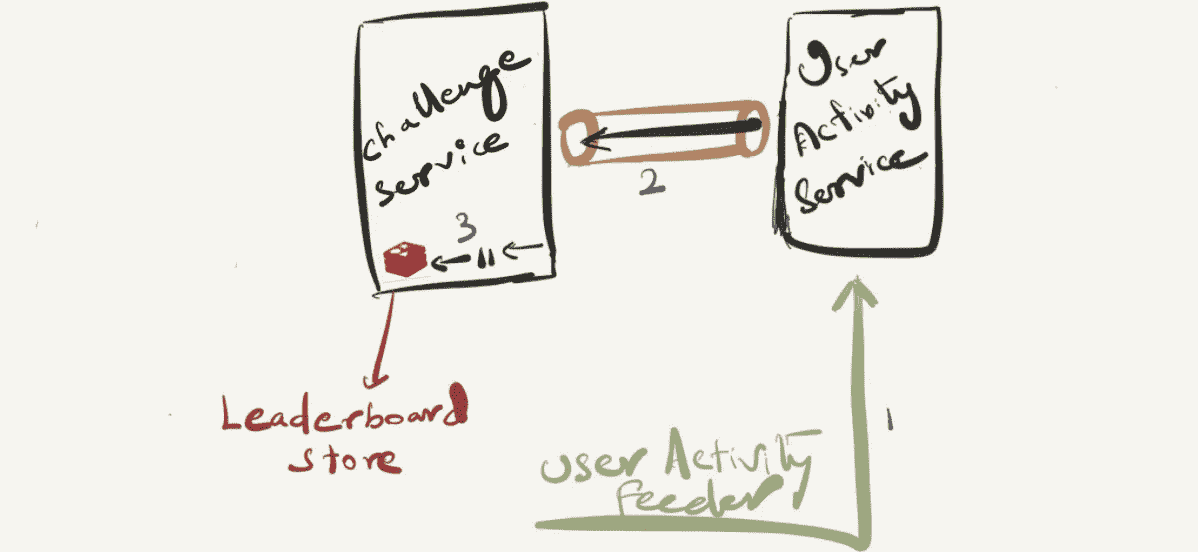 challenge
service
3
2
User
Activity
Service
1
Leaderboard
store
user Activity
feeder